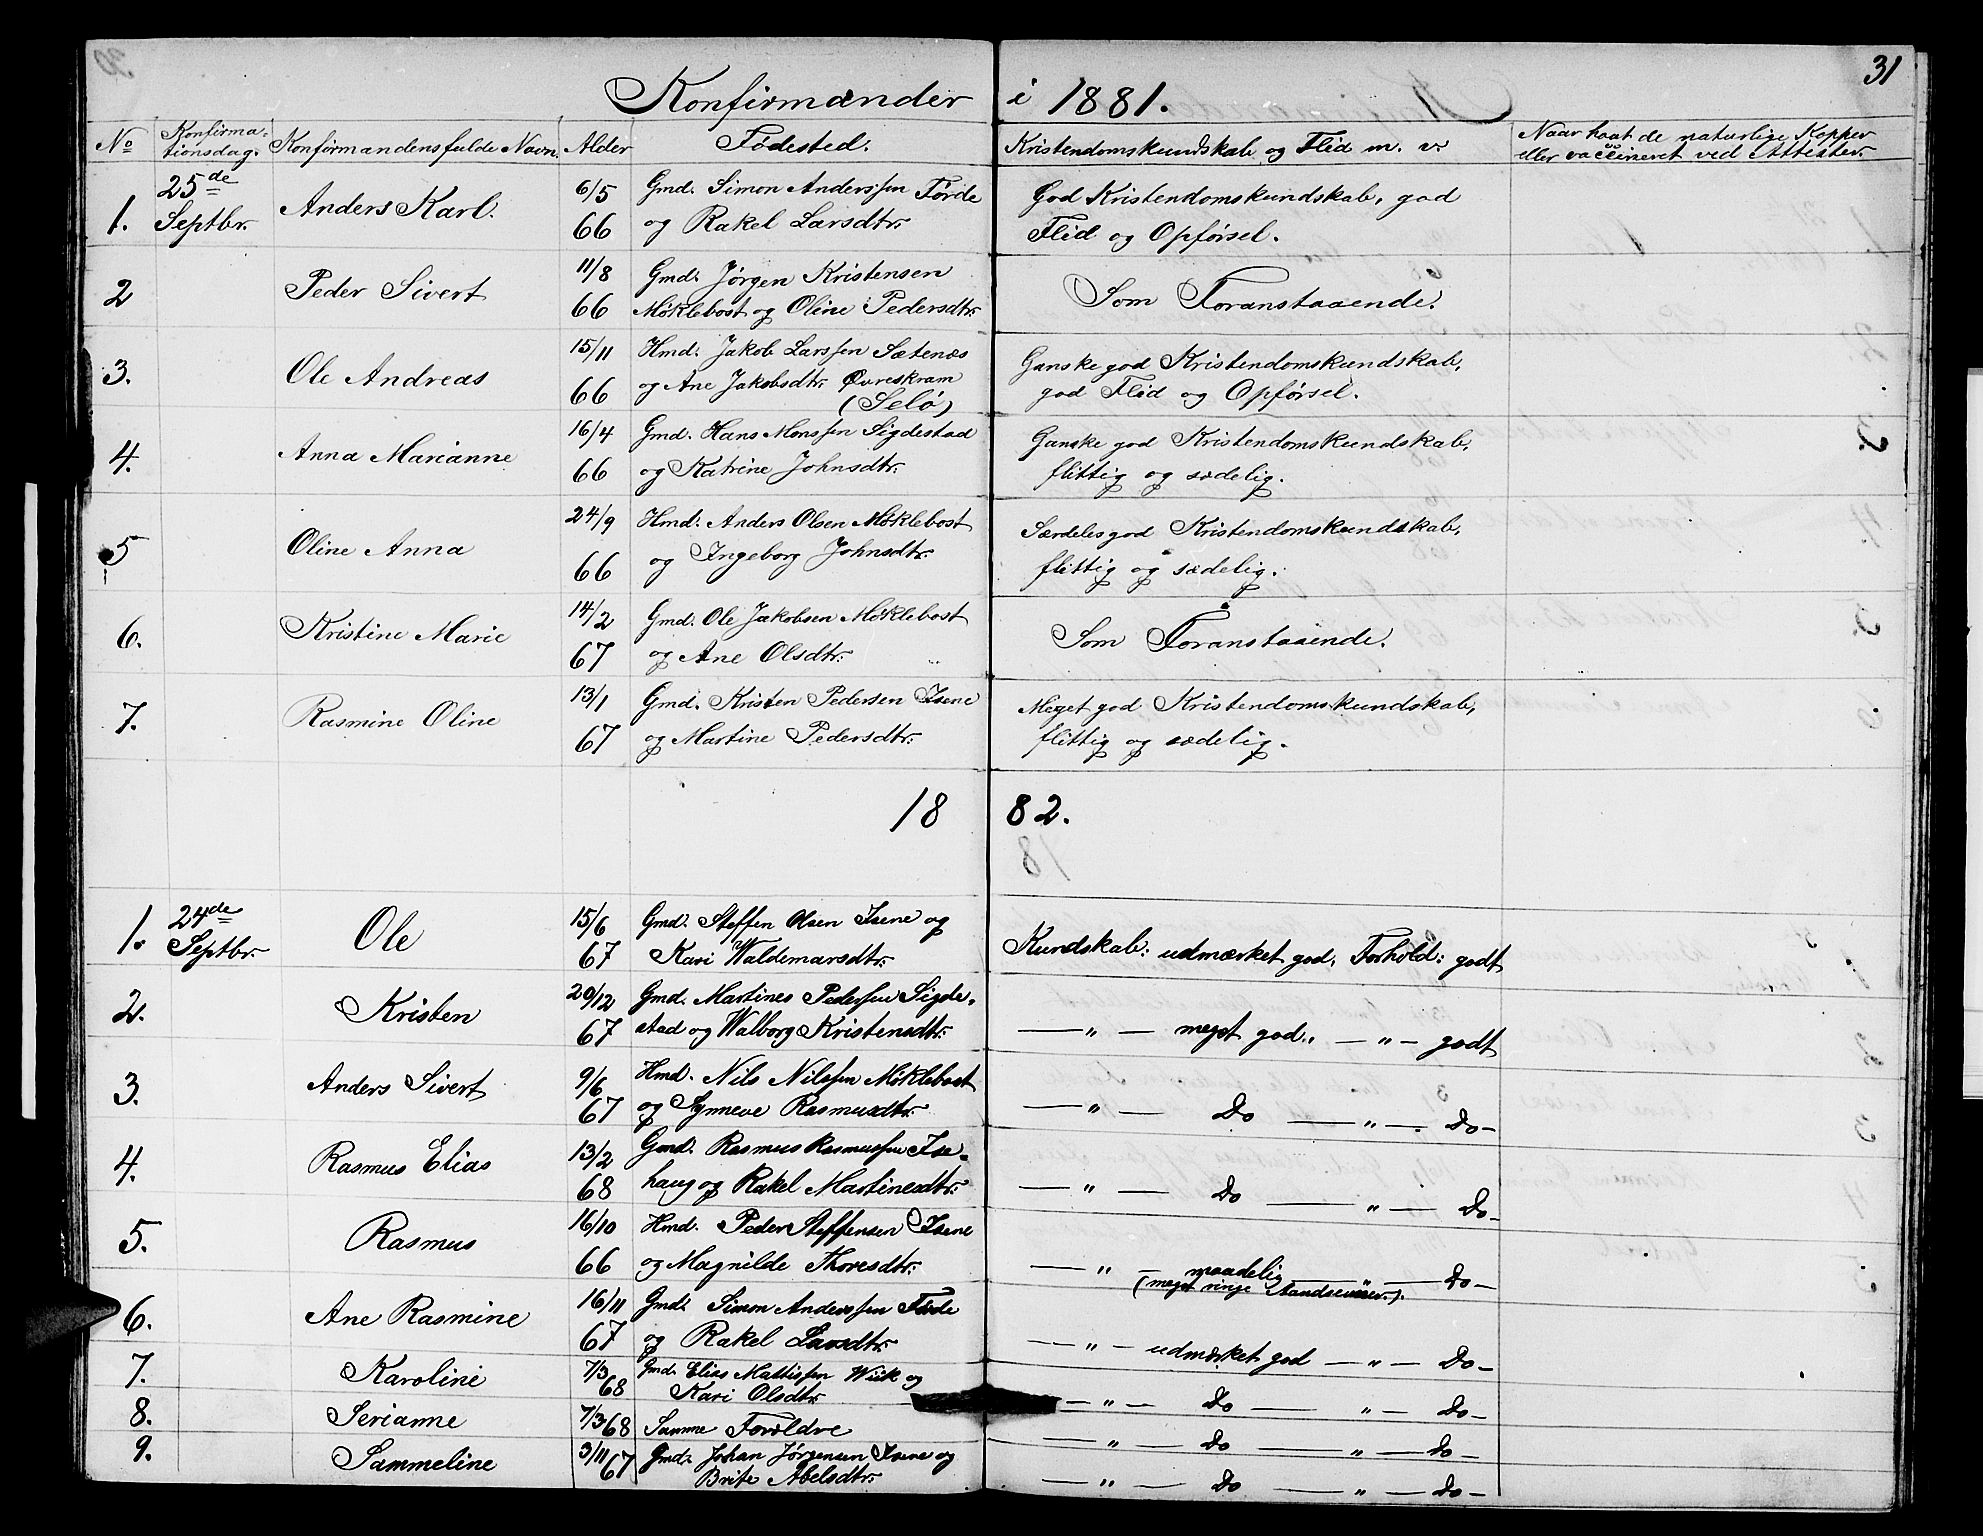 31
Konfirmander i 1881.
No Konfirma- tionsdag. Konfirmandens fulde Navn. Alder Fødested. Kristendomskundskab og Flid m. v. Naar havt de naturlige Kopper eller vaccineret ved Attester.
1. 25de Septbr. Anders Karl. 6/5 66 Gmd. Simon Anderssen Førde og Rakel Larsdtr. God Kristendomskundskab, god Flid og Opførsel.
2 Peder Sivert 11/8 66 Gmd. Jørgen Kristensen Møklebost og Oline Pedersdtr. Som Foranstaaende.
3. Ole Andreas 15/11 66 Hmd. Jakob Larssen Sætenæs og Ane Jakobsdtr. Øvreskram (Selø) Ganske god Kristendomskundskab, god Flid og Opførsel.
4. Anna Marianne 16/4 66 Gmd. Hans Monssen Sigdestad og Katrine Johnsdtr. Ganske god Kristendomskundskab, flittig og sædelig.
5 Oline Anna 24/9 66 Hmd. Anders Olsen Møklebost og Ingeborg Johnsdtr. Særdeles god Kristendomskundskab, flittig og sædelig.
6. Kristine Marie 14/2 67 Gmd. Ole Jakobsen Møklebost og Ane Olsdtr. Som Foranstaaende.
7. Rasmine Oline 13/1 67 Gmd. Kristen Pedersen Isene og Martine Pedersdtr. Meget god Kristendomskundskab, flittig og sædelig.
1882.
1. 24de Septbr. Ole 15/6 67 Gmd. Steffen Olsen Isene og Kari Waldemarsdtr. Kundskab: udmærket god, Forhold: godt
2. Kristen 20/12 67 Gmd. Martines Pederssen Sigde- stad og Walborg Kristensdtr. — " — meget god, — " — godt
3. Anders Sivert 9/6 67 Hmd. Nils Nilssen Møklebost og Synneve Rasmusdtr. — " — Do — " — Do —
4. Rasmus Elias 13/2 68 Gmd. Rasmus Rasmussen Ise- haug og Rakel Martinesdtr. — " — Do — " — Do —
5. Rasmus 16/10 66 Hmd. Peder Steffensen Isene og Magnilde Thoresdtr. — " — maadelig — " — Do — (meget ringe Aandsevner.)
6. Ane Rasmine 16/11 67 Gmd. Simon Anderssen Førde og Rakel Larsdtr. — " — udmærket god — " — Do —
7. Karoline 7/3 68 Gmd. Elias Mattissen Wiik og Kari Olsdtr. — " — Do — " — Do —
8. Serianne 7/3 68 Samme Forældre — " — Do — " — Do —
9. Sammeline 3/11 67 Gmd. Johan Jørgensen Isene og Brite Abelsdtr. — " — Do — " — Do —